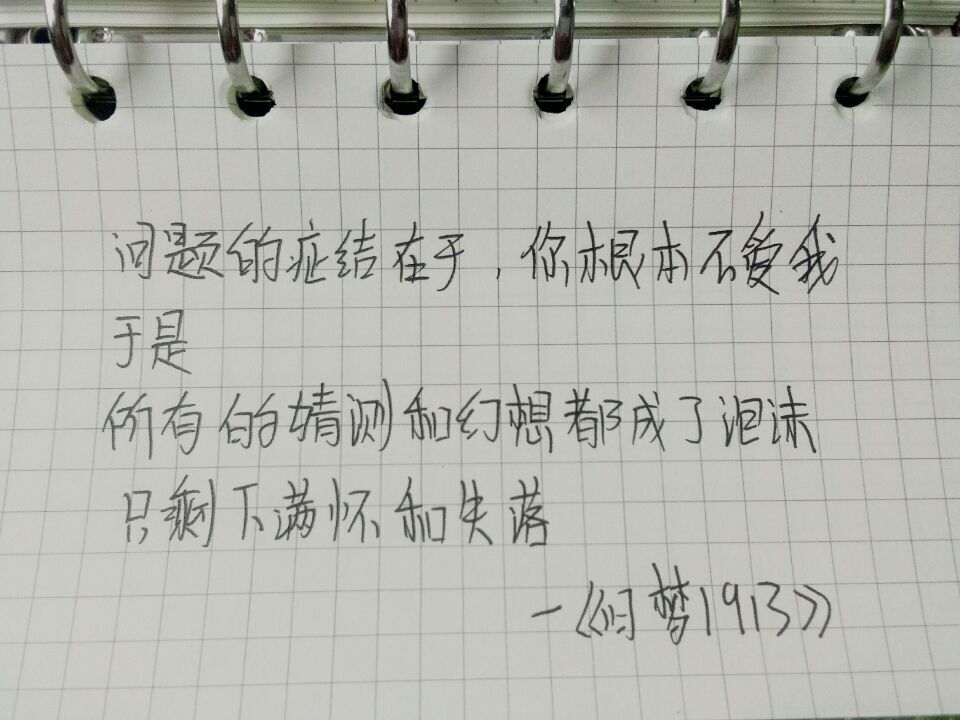 问题的症结在于，你根本不爱我
于是
所有的猜测和幻想都成了泡沫
只剩下满怀和失落
—《归梦1913》